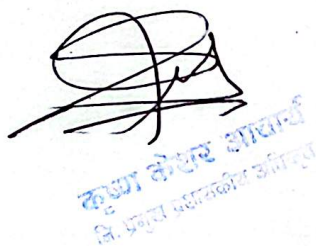 कृष्ण केशर आचार्य
नि. प्रमुख प्रशासकीय अधिकृत